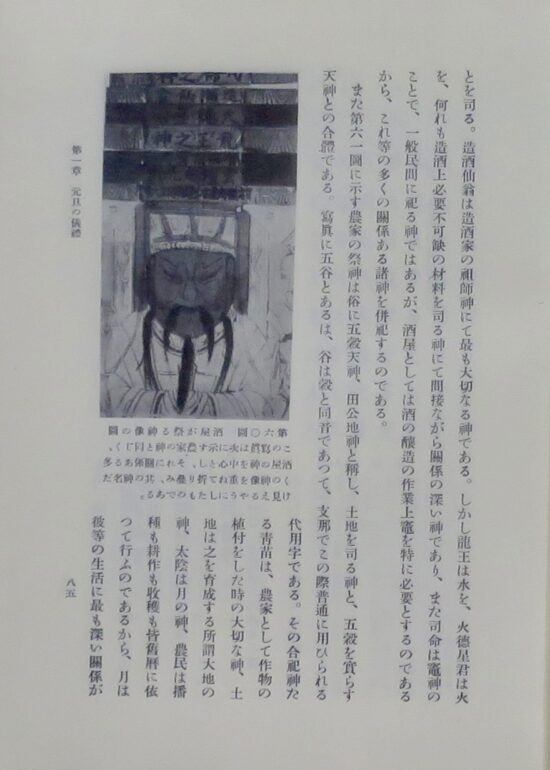 とを司る。造酒仙翁は造酒家の祖師神にて最も大切なる神である。しかし龍王は水を、火德星君は火
を、何れも造酒上必要不可缺の材料を司る神にて間接ながら關係の深い神であり、また司命は竈神の
ことで、一般民間に祀る神ではあるが、酒屋としては酒の釀造の作業上竈を特に必要とするのである
から、これ等の多くの關係ある諸神を併祀するのである。
また第六一圖に示す農家の祭神は俗に五穀天神、田公地神と稱し、土地を司る神と、五穀を實らす
天神との合體である。寫眞に五谷とあるは、谷は穀と同音であつて、支那でこの際普通に用ひられる
代用字である。その合祀神た
る靑苗は、農家として作物の
植付をした時の大切な神、土
地は之を育成する所謂大地の
神、太陰は月の神、農民は播
種も耕作も收穫も皆舊曆に依
つて行ふのであるから、月は
彼等の生活に最も深い關係が
龍王之神
第六〇圖 酒屋が祭る神像の圖
この寫眞は次に示す農家の神と同じく、
酒屋の神を中心とし、それに關係ある多
くの神像を重ねて折り疊み、其の神名だ
け見えるやうにしたものである。
第一章 元旦の儀禮
八五